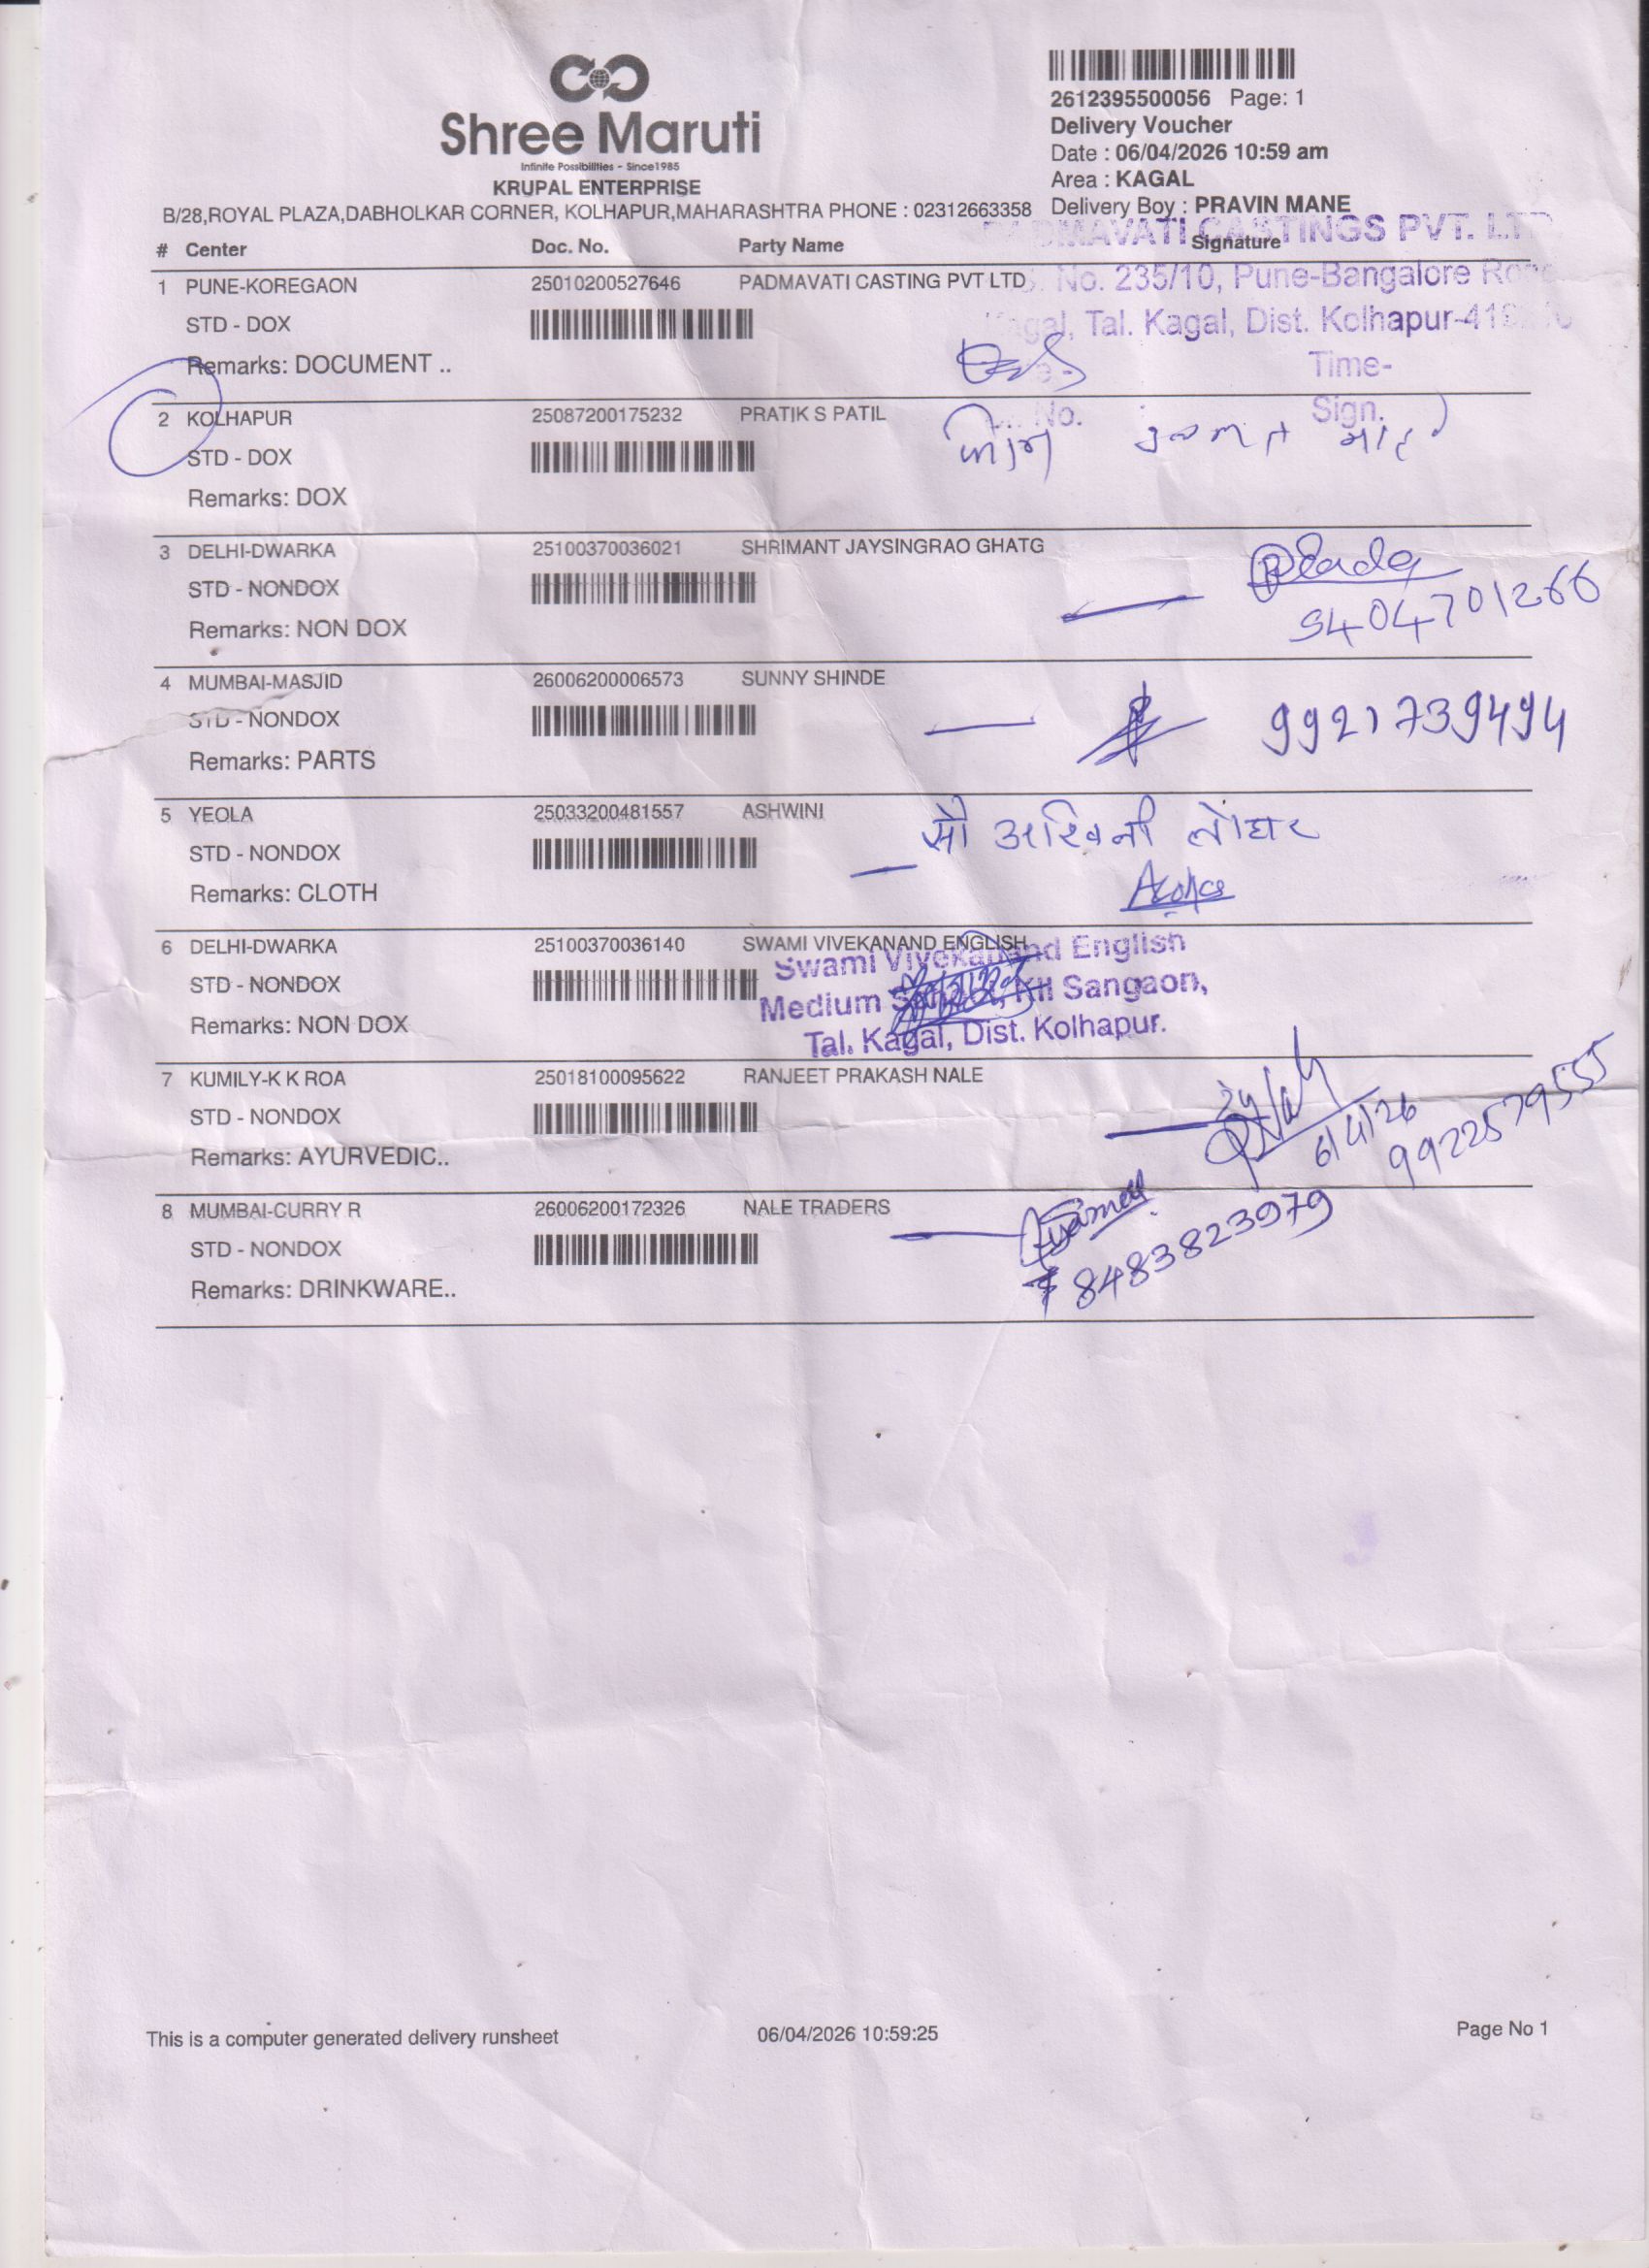 Shree Maruti
Infinite Possibilities - Since1985
KRUPAL ENTERPRISE
B/28,ROYAL PLAZA,DABHOLKAR CORNER, KOLHAPUR,MAHARASHTRA PHONE : 02312663358
2612395500056 Page: 1
Delivery Voucher
Date : 06/04/2026 10:59 am
Area : KAGAL
Delivery Boy : PRAVIN MANE
PADMAVATI CASTINGS PVT. LTD.
# Center Doc. No. Party Name Signature
No. 235/10, Pune-Bangalore Road
Kagal, Tal. Kagal, Dist. Kolhapur-416216
Time-
No. Sign.
1 PUNE-KOREGAON 25010200527646 PADMAVATI CASTING PVT LTD
STD - DOX
Remarks: DOCUMENT ..
2 KOLHAPUR 25087200175232 PRATIK S PATIL
STD - DOX
Remarks: DOX
3 DELHI-DWARKA 25100370036021 SHRIMANT JAYSINGRAO GHATG
STD - NONDOX
9404701266
Remarks: NON DOX
4 MUMBAI-MASJID 26006200006573 SUNNY SHINDE
STD - NONDOX 9921739494
Remarks: PARTS
5 YEOLA 25033200481557 ASHWINI
सौ अश्विनी लोहार
STD - NONDOX
Remarks: CLOTH
6 DELHI-DWARKA 25100370036140 SWAMI VIVEKANAND ENGLISH
Swami Vivekanand English
STD - NONDOX
Medium School, Kll Sangaon,
Remarks: NON DOX
Tal. Kagal, Dist. Kolhapur.
7 KUMILY-K K ROA 25018100095622 RANJEET PRAKASH NALE
STD - NONDOX
6/4/26 9922579555
Remarks: AYURVEDIC..
8 MUMBAI-CURRY R 26006200172326 NALE TRADERS
STD - NONDOX
8483823979
Remarks: DRINKWARE..
This is a computer generated delivery runsheet 06/04/2026 10:59:25 Page No 1